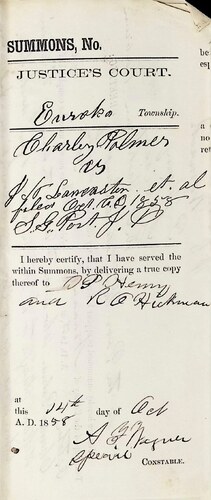 SUMMONS, No.
JUSTICE'S COURT.
Euroko Township.
Charley Polmer
vs
J T Lancaster et. al
filed Oct. 20, 1858
S. G. Port. J. P
I hereby certify, that I have served the
within Summons, by delivering a true copy
thereof to O P Henry
and R A Hickman
at
this 14th day of Oct
A. D. 1858
A G Wagner
Special CONSTABLE.